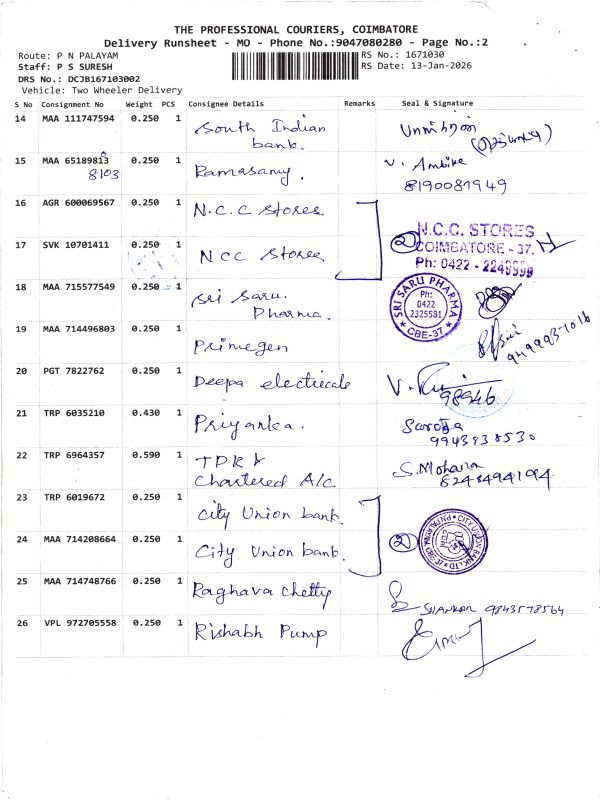 THE PROFESSIONAL COURIERS, COIMBATORE
Delivery Runsheet - MO - Phone No.:9047080280 - Page No.:2
Route: P N PALAYAM
RS No.: 1671030
Staff: P S SURESH
RS Date: 13-Jan-2026
DRS No.: DCJB167103002
Vehicle: Two Wheeler Delivery
S No Consignment No Weight PCS Consignee Details Remarks Seal & Signature
14 MAA 111747594 0.250 1 South Indian
bank.
15 MAA 65189813 0.250 1 Ramasamy. V. Ambika
8103 8190087949
16 AGR 600069567 0.250 1 N.C.C Stores
N.C.C. STORES
17 SVK 10701411 0.250 1 NCC Stores 2 COIMBATORE - 37.
Ph: 0422 - 2249999
18 MAA 715577549 0.250 1 Sri Saru.
Pharma.
SRI SARU PHARMA
Ph:
0422
2325581
CBE-37
19 MAA 714496803 0.250 1 Primegen
20 PGT 7822762 0.250 1 Deepa electricals
98946
21 TRP 6035210 0.430 1 Priyanka. Saroja
9943838530
22 TRP 6964357 0.590 1 TPR &
Chartered A/c
S. Mohana
8248494194
23 TRP 6019672 0.250 1 City Union bank.
24 MAA 714208664 0.250 1 City Union bank. 2
CITY UNION BANK LTD
CBE-37
25 MAA 714748766 0.250 1 Raghava Chetty
SHANKAR 9843578564
26 VPL 972705558 0.250 1 Rishabh Pump